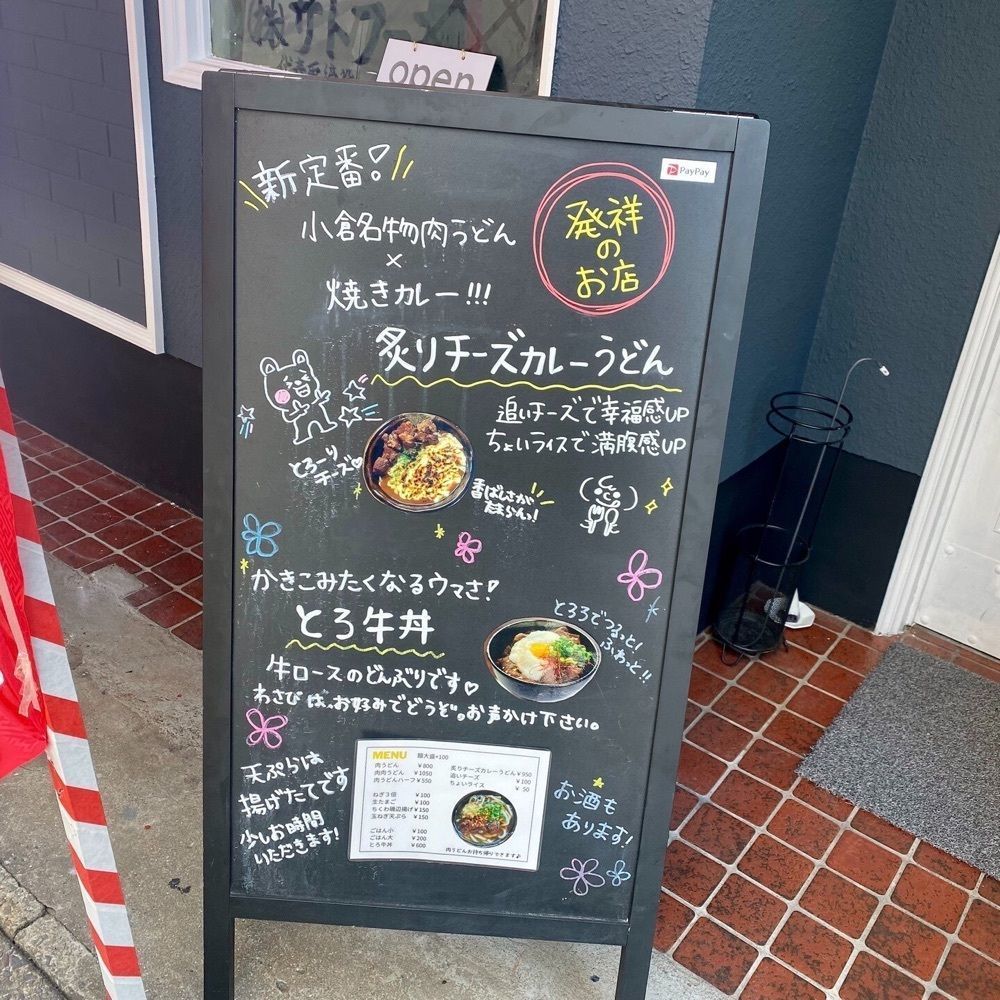 ㈱サトフー
open
PayPay
新定番!
小倉名物肉うどん
×
焼きカレー!!!
発祥
の
お店
炙りチーズカレーうどん
追いチーズで幸福感UP
ちょいライスで満腹感UP
とろ〜り
チーズ♡
香ばしさが
たまらんっ!
かきこみたくなるウマさ!
とろ牛丼
とろろでつるっと!
ふわっと!!
牛ロースのどんぶりです♡
わさびは、お好みでどうぞ。お声かけ下さい。
天ぷらは
揚げたてです
少しお時間
いただきます!
MENU 麺大盛+100
肉うどん ¥800
肉肉うどん ¥1050
肉うどんハーフ ¥550
ねぎ3倍 ¥100
生たまご ¥100
ちくわ磯辺揚げ ¥150
玉ねぎ天ぷら ¥150
ごはん小 ¥100
ごはん大 ¥200
とろ牛丼 ¥600
炙りチーズカレーうどん ¥950
追いチーズ ¥100
ちょいライス ¥50
肉うどんお持ち帰りできます♪
お酒も
あります!